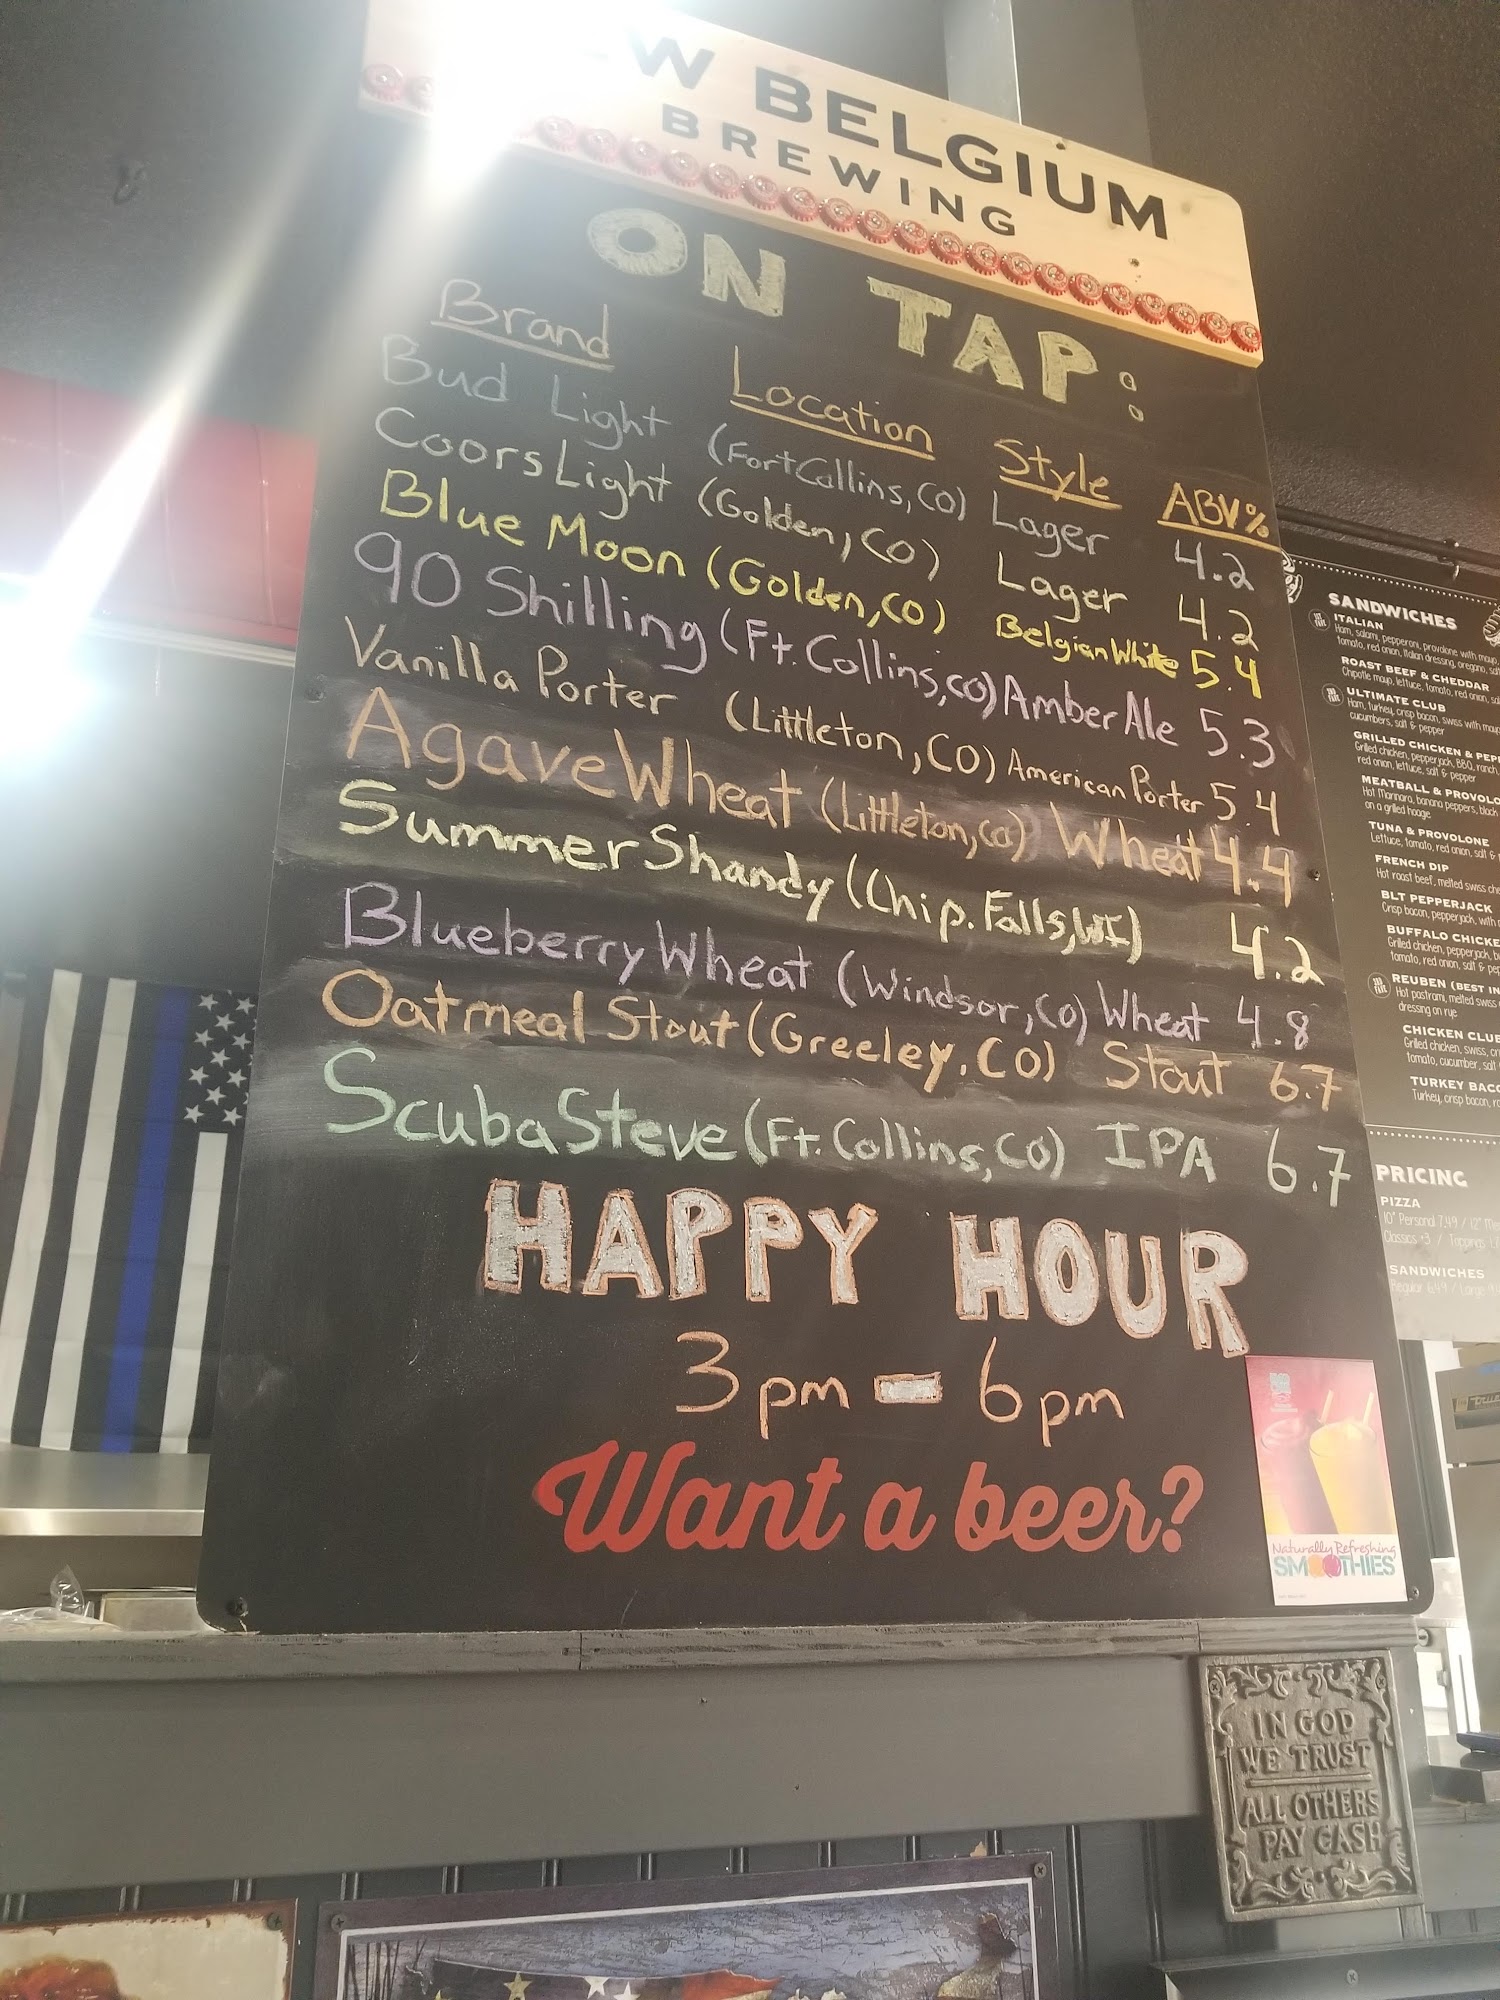 W BELGIUM
BREWING
ON TAP:
Brand Location Style ABV%
Bud Light (Fort Collins, CO) Lager 4.2
Coors Light (Golden, CO) Lager 4.2
Blue Moon (Golden, CO) Belgian White 5.4
90 Shilling (Ft. Collins, CO) Amber Ale 5.3
Vanilla Porter (Littleton, CO) American Porter 5.4
Agave Wheat (Littleton, CO) Wheat 4.4
Summer Shandy (Chip. Falls, WI) 4.2
Blueberry Wheat (Windsor, CO) Wheat 4.8
Oatmeal Stout (Greeley, CO) Stout 6.7
Scuba Steve (Ft. Collins, CO) IPA 6.7
HAPPY HOUR
3pm - 6pm
Want a beer?
Naturally Refreshing
SMOOTHIES
IN GOD
WE TRUST
ALL OTHERS
PAY CASH
SANDWICHES
ITALIAN
Ham, salami, pepperoni, provolone with mayo,
tomato, red onion, Italian dressing, oregano,
ROAST BEEF & CHEDDAR
Chipotle mayo, lettuce, tomato, red onion,
ULTIMATE CLUB
Ham, turkey, crisp bacon, swiss with mayo
cucumbers, salt & pepper
GRILLED CHICKEN &
Grilled chicken, pepperjack, BBQ, ranch,
red onion, lettuce, salt & pepper
MEATBALL &
Hot Marinara, banana peppers, black
on a grilled hoagie
TUNA & PROVOLONE
Lettuce, tomato, red onion, salt &
FRENCH DIP
Hot roast beef, melted swiss
BLT PEPPERJACK
Crisp bacon, pepperjack, with
BUFFALO
Grilled chicken, pepperjack,
tomato, red onion, salt &
REUBEN (BEST IN
Hot pastrami, melted swiss
dressing on rye
CHICKEN CLUB
Grilled chicken, swiss,
tomato, cucumber, salt
TURKEY
Turkey, crisp bacon,
PRICING
PIZZA
10" Personal 7.49 / 12"
Classics +3 / Toppings
SANDWICHES
Regular 6.49 / Large